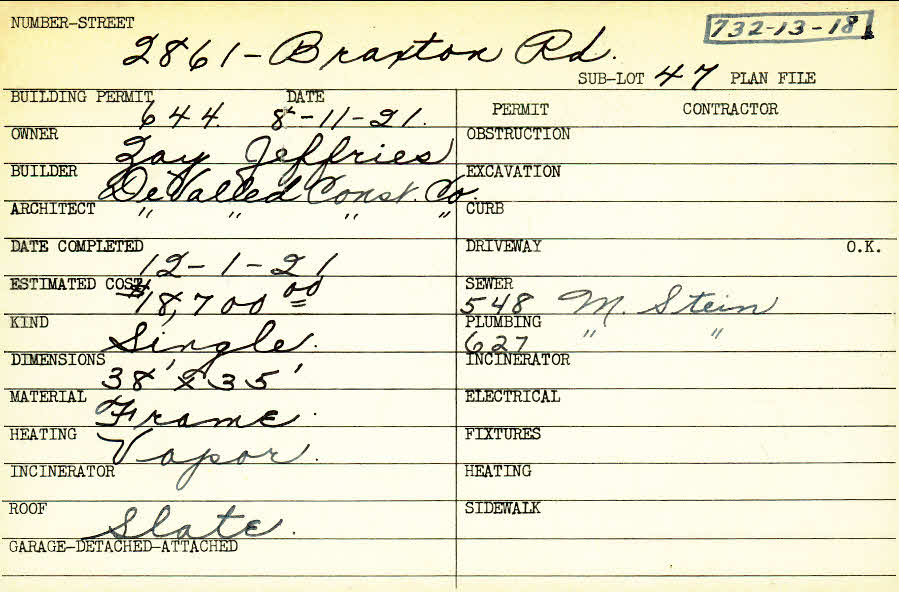 NUMBER-STREET
732-13-18
2861- Braxton Rd.
SUB-LOT 47 PLAN FILE
BUILDING PERMIT DATE
644. 8-11-21.
PERMIT CONTRACTOR
OWNER Zay Jeffries
OBSTRUCTION
BUILDER
EXCAVATION
Const. Co.
ARCHITECT " " " "
CURB
DATE COMPLETED 12-1-21
DRIVEWAY O.K.
ESTIMATED COST $18,700 00
SEWER
548 M. Stein
KIND Single.
PLUMBING
627 " "
DIMENSIONS 38' x 35'
INCINERATOR
MATERIAL Frame.
ELECTRICAL
HEATING Vapor.
FIXTURES
INCINERATOR
HEATING
ROOF Slate.
SIDEWALK
GARAGE-DETACHED-ATTACHED